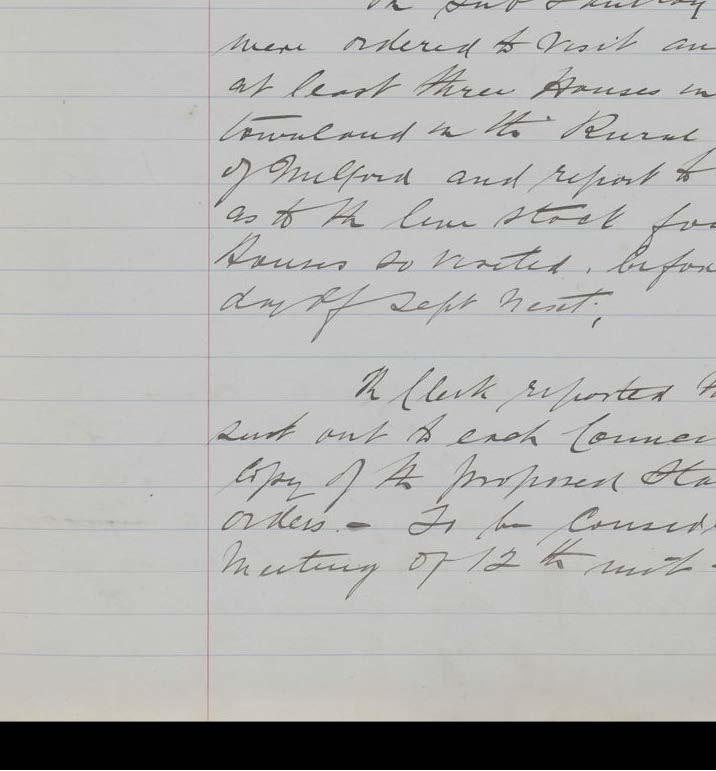 The Sub Sanitary
were ordered to visit an
at least three Houses in
townland in the Rural
of Milford and report to
as to the live stock fou
Houses so visited, before
day of Sept next;
The Clerk reported h
sent out to each Counci
copy of the proposed Sta
orders. - To be Consid
Meeting of 12th inst -